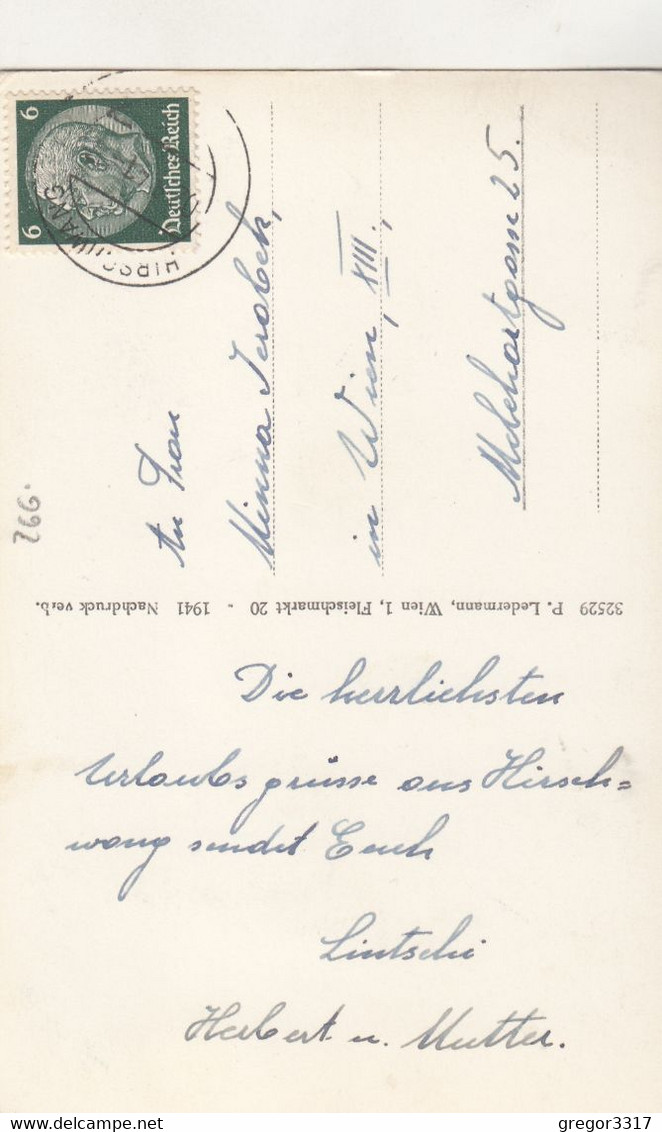 6 6
Deutsches Reich
HIRSCHWANG
An Frau
Minna Jerabek,
in Wien, XIII.,
Melchartgasse 25.
266.
32529 P. Ledermann, Wien 1, Fleischmarkt 20 - 1941 Nachdruck verb.
Die herrlichsten
Urlaubsgrüsse aus Hirsch=
wang sendet Euch
Lintschi
Herbert u. Mutter.
gregor3317